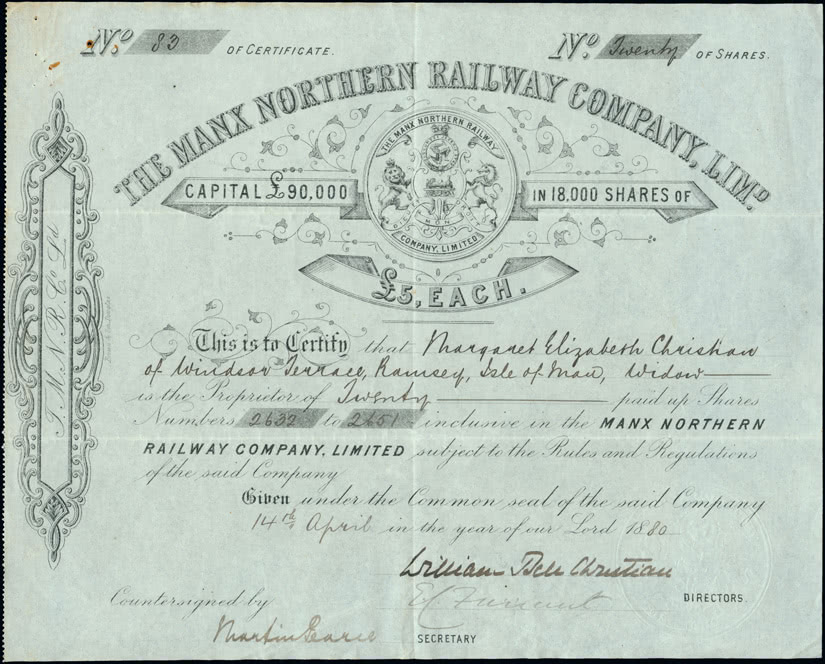 No 83 OF CERTIFICATE.
No Twenty OF SHARES.
THE MANX NORTHERN RAILWAY COMPANY, LIMD
CAPITAL £90,000
THE MANX NORTHERN RAILWAY
COMPANY, LIMITED
IN 18.000 SHARES OF
£5, EACH.
T. M. N. R. Co Ld
This is to Certify that Margaret Elizabeth Christian
of Windsor Terrace, Ramsey, Isle of Man, Widow
is the Proprietor of Twenty paid up Shares
Numbers 2632 to 2651 inclusive in the MANX NORTHERN
RAILWAY COMPANY, LIMITED subject to the Rules and Regulations
of the said Company
Given under the Common seal of the said Company
14th April in the year of our Lord 1880
William Bell Christian
DIRECTORS.
Countersigned by
Martin
SECRETARY